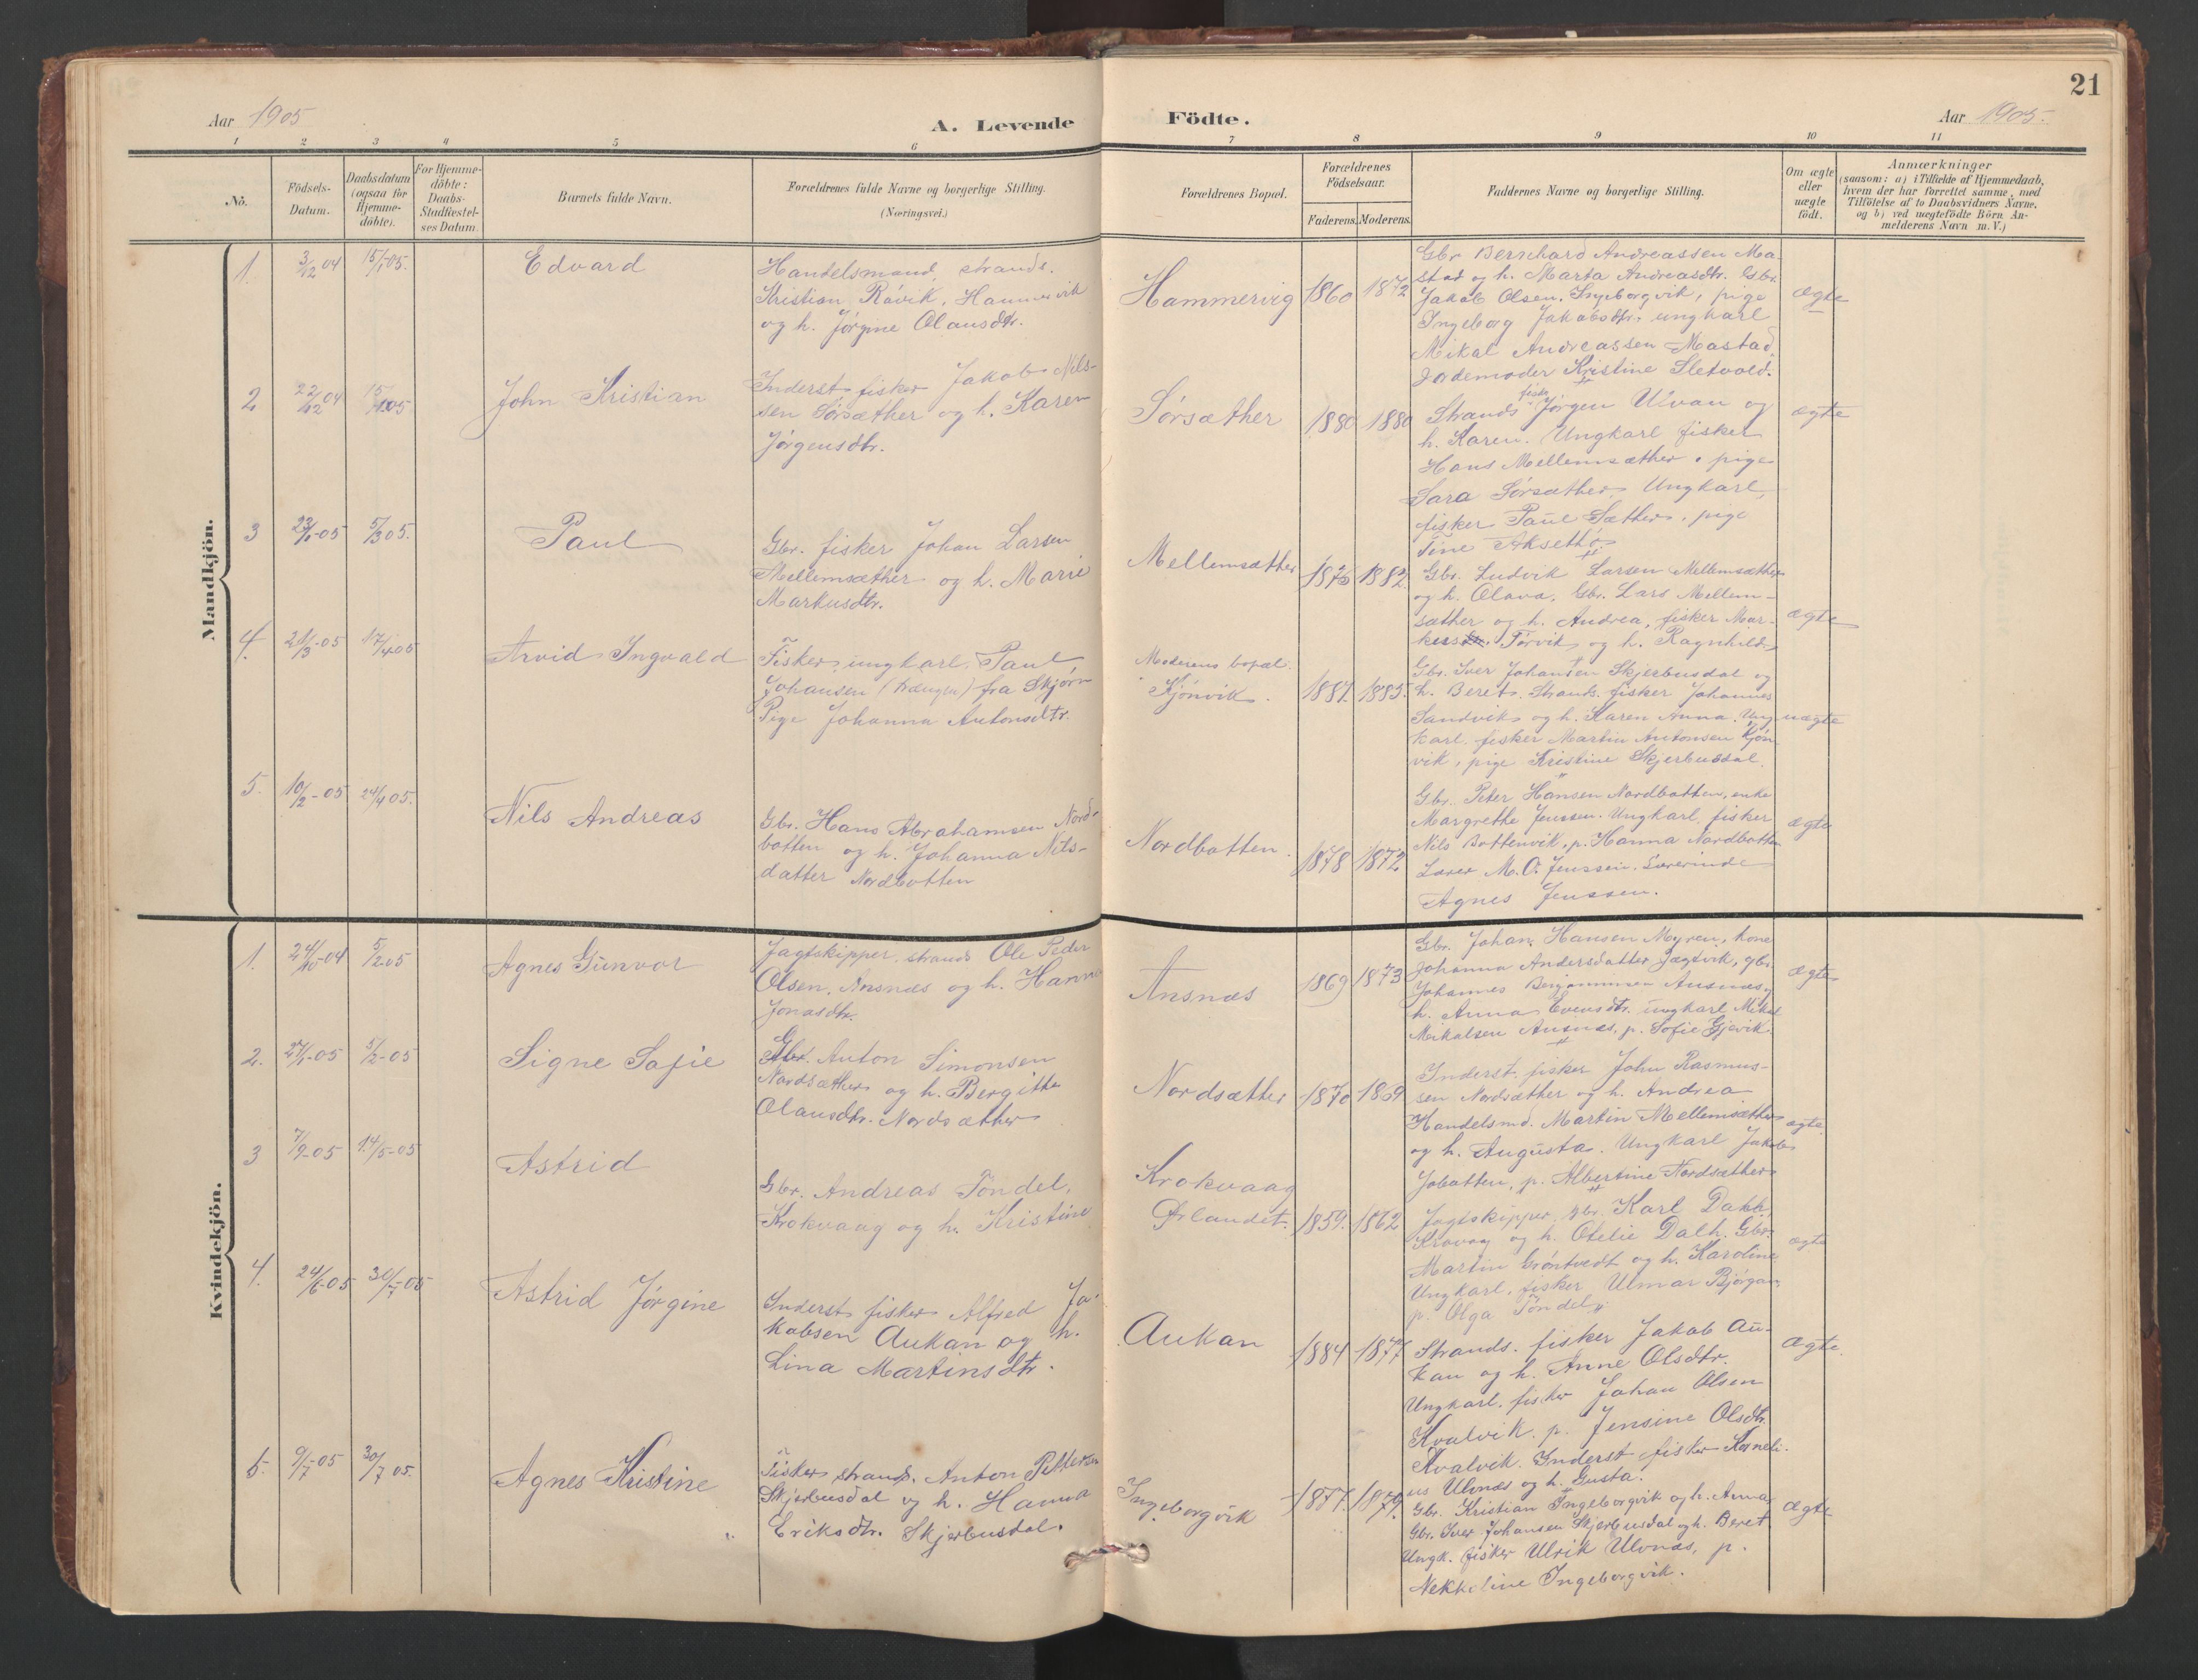 21
Aar 1905
A. Levende Födte.
Aar 1905.
1 2 3 4 5 6 7 8 9 10 11
No.
Födsels-
Datum.
Daabsdatum
(ogsaa for
Hjemme-
döbte).
For Hjemme-
döbte:
Daabs-
Stadfæstel-
ses Datum.
Barnets fulde Navn.
Forældrenes fulde Navne og borgerlige Stilling.
(Næringsvei.)
Forældrenes Bopæl.
Forældrenes
Födselsaar.
Faderens. Moderens.
Faddernes Navne og borgerlige Stilling.
Om ægte
eller
uægte
födt.
Anmærkninger
(saasom: a) i Tilfælde af Hjemmedaab,
hvem der har forrettet samme, med
Tilföielse af to Daabsvidners Navne,
og b) ved uægtefödte Börn An-
melderens Navn m.V.)
Mandkjön.
1. 3/12 04 15/1-05. Edvard
Handelsmand, strands.
Kristian Råvik, Hammervik
og h. Jørgine Olausdtr.
Hammervig 1860 1872
Gbr Bernhard Andreassen Ma-
stad og h. Marta Andreasdtr. Gbr.
Jakob Olsen, Ingeborgvik, pige
Ingeborg Jakobsdtr. ungkarl
Mikal Andreassen Mastad,
Jordemoder Kristine Sletvold.
ægte
2 22/12 04 15/1 05 John Kristian
Inderst, fisker Jakob Nils-
sen Sørsæther og h. Karen
Jørgensdtr.
Sørsæther 1880 1880
fisker
Strands Jørgen Ulvan og
h. Karen. Ungkarl fisker
Hans Mellemsæther, pige
Sara Sørsæther, Ungkarl,
fisker Paul Sæther, pige
Tine Aksethø
ægte
3 23/1-05 5/3 05. Paul
Gbr. fisker Johan Larsen
Mellemsæther og h. Marie
Markusdtr.
Mellemsæther 1876 1882.
Gbr. Ludvik Larsen Mellemsæther
og h. Olava, Gbr. Lars Mellem-
sæther og h. Andrea, fisker Mar-
kus Førvik og h. Ragnhild
ægte
4. 21/3-05 17/4 05 Arvid Ingvald
Fisker, ungkarl, Paul
Johansen (Dængen) fra Skjørn
Pige Johanna Antonsdtr.
Moderens bopæl.
Kjönvik. 1887. 1885.
Gbr. Iver Johansen Skjerbusdal og
h. Beret. Strands. fisker Johannes
Sandvik og h. Karen Anna. Ung-
karl. fisker Martin Antonsen Kjön-
vik, pige Kristine Skjerbusdal.
uægte
5. 10/2-05 24/4 05. Nils Andreas
Gbr. Hans Abrahamsen Nord-
botten og h. Johanna Nils-
datter Nordbotten
Nordbotten. 1878 1872
Gbr. Peter Hansen Nordbotten, enke
Margrethe Jenssen. Ungkarl, fisker
Nils Bottenvik, p. Hanna Nordbotten
Lærer M. O. Jenssen. Lærerinde
Agnes Jenssen.
ægte
Kvindekjön.
1. 24/10-04 5/2-05 Agnes Gunvor
Jagtskipper, strands Ole Peder
Olsen, Ansnæs og h. Hanna
Jonasdtr.
Ansnæs 1869 1873
Gbr. Johan Hansen Myren, kone
Johanna Andersdatter Jægtvik, gbr.
Johannes Benjaminsen Ansnæs og
h. Anna Evensdtr. ungkarl Mikal
Mikalsen Ansnæs, p. Sofie Gjævik.
ægte
2. 27/1-05 5/2-05 Signe Sofie
Gbr. Anton Simonsen
Nordsæther og h. Bergitte
Olausdtr. Nordsæther
Nordsæther 1870 1869
Inderst, fisker John Rasmus-
sen Nordsæther og h. Andrea
Handelsmd. Martin Mellemsæther
og h. Augusta. Ungkarl Jakob
Jobotten, p. Albertine Nordsæther
ægte
3 7/2-05 14/5-05 Astrid
Gbr. Andreas Tøndel,
Krokvaag og h. Kristine
Krokvaag
Ørlandet. 1859. 1862
Jagtskipper, gbr. Karl Dahl,
Krovaag og h. Otelie Dalh. Gbr.
Martin Grøntvedt og h. Karoline
Ungkarl, fisker Ulmar Bjørgan,
p. Olga Tøndel
ægte
4. 24/6-05 30/7-05 Astrid Jørgine
Inderst fisker Alfred Ja-
kobsen Aukan og h.
Lina Martinsdtr.
Aukan 1884 1877
Strands. fisker Jakob Au-
kan og h. Anne Olsdtr.
Ungkarl. fisker Johan Olsen
Kvalvik. p. Jensine Olsdtr.
Kvalvik. Inderst fisker Korneli-
us Ulvnæs og h. Gusta.
ægte.
5. 9/7-05 30/7 05. Agnes Kristine
Fisker, strands. Anton Pettersen
Skjerbusdal og h. Hanna
Eriksdtr. Skjerbusdal.
Ingeborgvik 1877. 1879.
Gbr. Kristian Ingeborgvik og h. Anna
Gbr. Iver Johansen Skjerbusdal og h. Beret
Ungk. fisker Ulrik Ulvnæs, p.
Nekkoline Ingeborgvik.
ægte